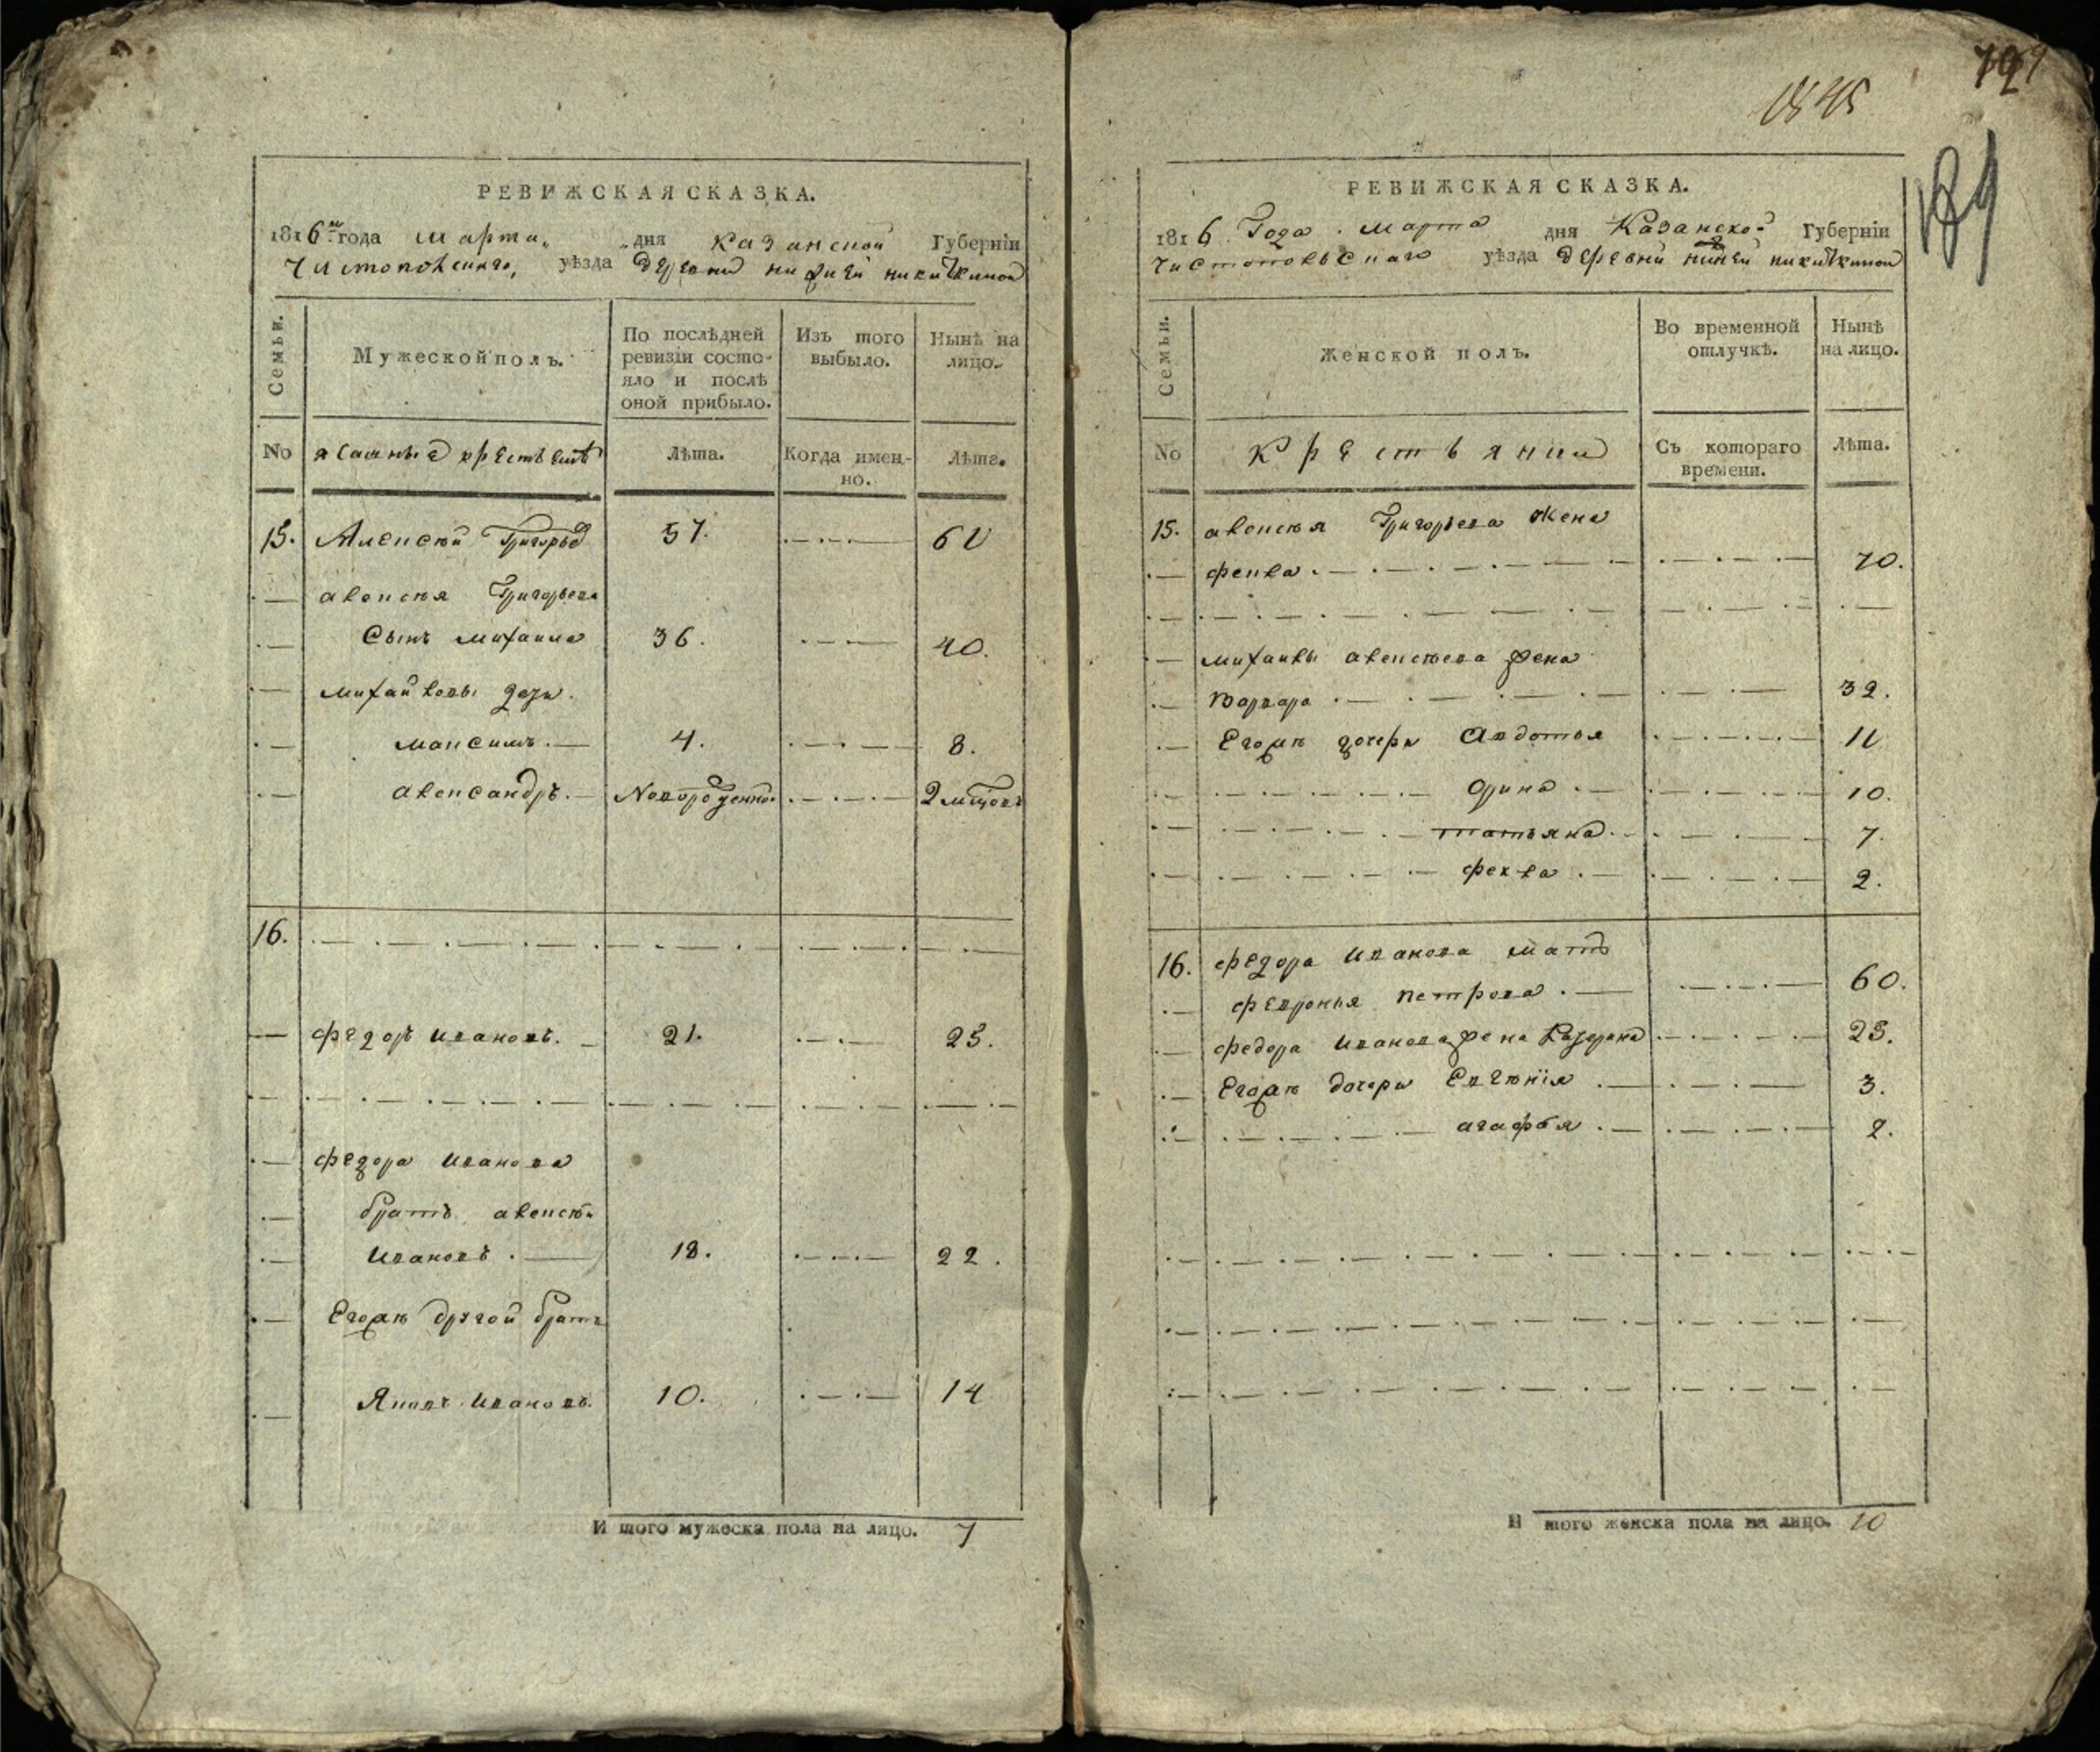 РЕВИЖСКАЯ СКАЗКА.
1816го года марта дня казанской Губерніи
Чистопольскаго, уѣзда деревни нижней никиткиной
Семьи.
Мужеской полъ.
По послѣдней ревизіи состо-
яло и послѣ
оной прибыло.
Изъ того
выбыло.
Нынѣ на
лицо.
No ясашныя крестьянѣ Лѣта. Когда имен-
но. Лѣта.
15. Алексѣй Григорьев 57. 61
алексѣя Григорьева
Сынъ михаила 36. 40.
михайловы дети.
максимъ. 4. 8.
александръ. Новорожденной 2 мцовъ
16.
федоръ ивановъ. 21. 25.
федора иванова
братъ алексѣй
ивановъ. 18. 22.
Егожъ другой братъ
Яковъ ивановъ. 10. 14
И того мужеска пола на лицо. 7
1845
189
РЕВИЖСКАЯ СКАЗКА.
1816 Года. марта дня Казанской Губерніи
чистопольскаго уѣзда деревни нижней никиткиной
Семьи.
Женской полъ.
Во временной
отлучкѣ.
Нынѣ
на лицо.
No крестьянки Съ котораго
времени. Лѣта.
15. алексѣя Григорьева жена
фекла. 70.
михаилы алексѣева жена
варвара 32.
Егожъ дочери Авдотья 11
орина 10.
татьяна. 7.
фекла. 2.
16. федора иванова мать
февронья петрова. 60.
федора иванова жена 23.
Егожъ дочери Евгѣнія 3.
агафья. 2.
И того женска пола на лицо. 10